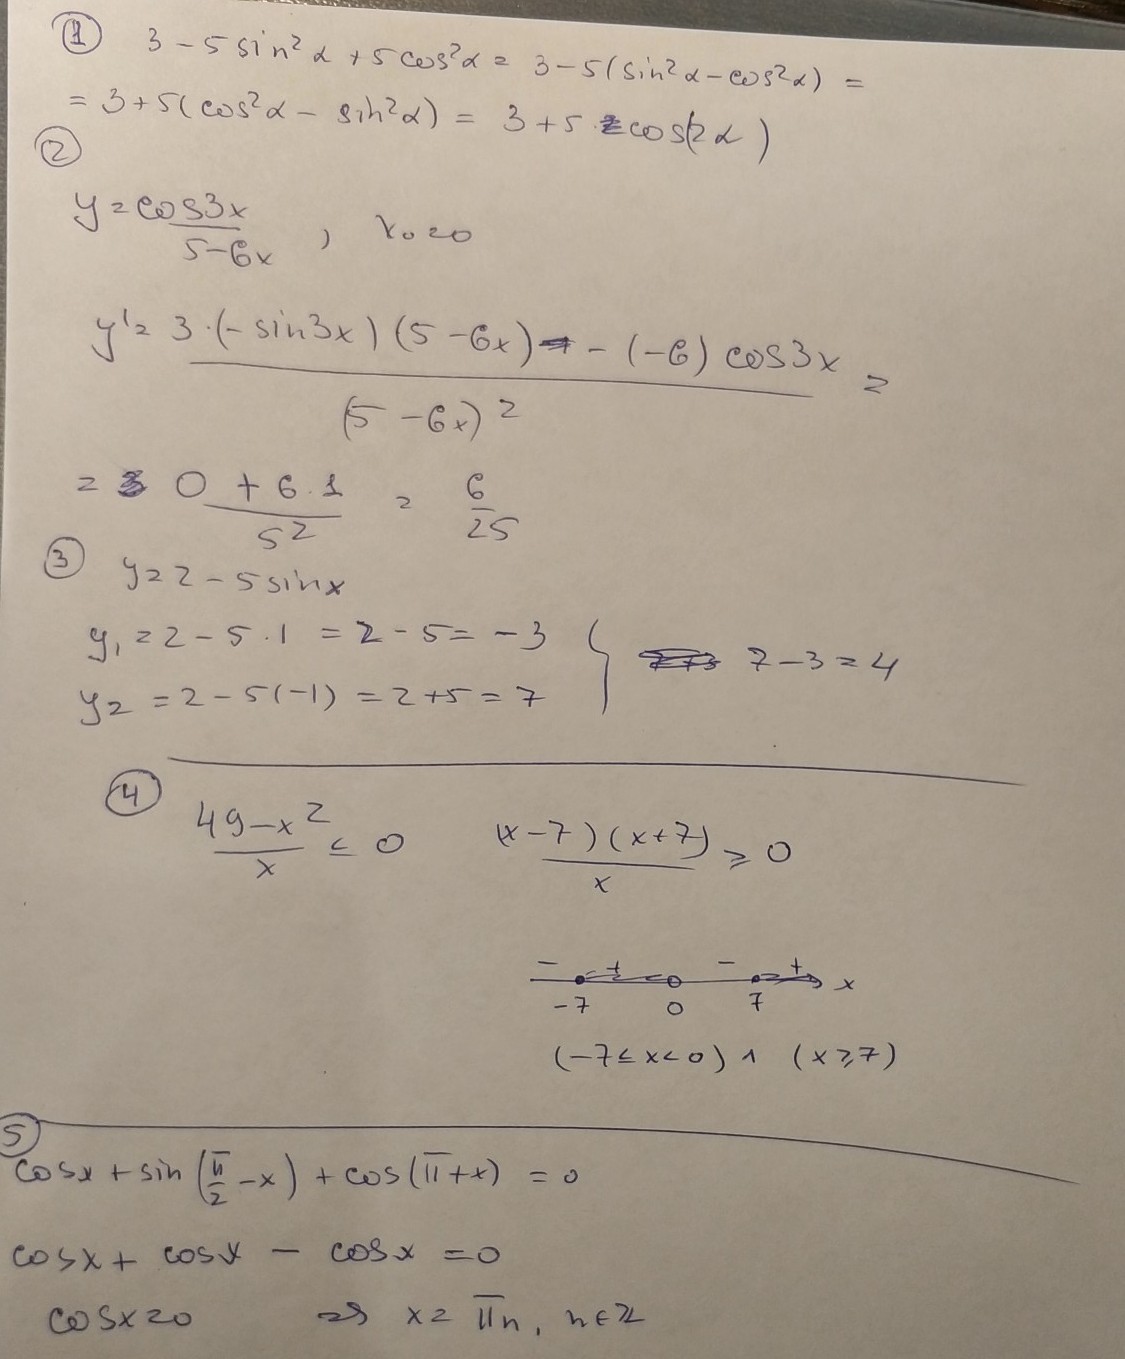 ① 3 - 5 sin²α + 5 cos²α = 3 - 5(sin²α - cos²α) =
= 3 + 5(cos²α - sin²α) = 3 + 5 · cos(2α)
②
y = cos3x / (5-6x) , x₀ = 0
y' = (3·(-sin3x)(5-6x) - (-6) cos3x) / (5-6x)² =
= (0 + 6·1) / 5² = 6/25
③ y = 2 - 5 sinx
y₁ = 2 - 5·1 = 2 - 5 = -3 } 7 - 3 = 4
y₂ = 2 - 5(-1) = 2 + 5 = 7
④ (49-x²)/x ≤ 0 (x-7)(x+7)/x ≥ 0
- + - + x
-7 0 7
(-7 ≤ x < 0) ∧ (x ≥ 7)
⑤
cosx + sin(π/2 - x) + cos(π + x) = 0
cosx + cosx - cosx = 0
cosx = 0 ⇒ x = πn, n ∈ ℤ